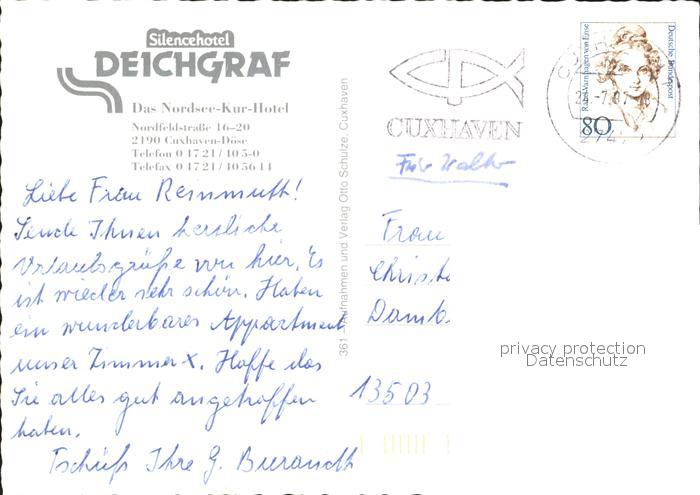 Silencehotel
DEICHGRAF
Das Nordsee-Kur-Hotel
Nordfeldstraße 16–20
2190 Cuxhaven-Döse
Telefon 0 47 21 / 40 5-0
Telefax 0 47 21 / 40 56 14
Liebe Frau Remmuth!
Sende Ihnen herzliche
Urlaubsgrüße von hier. Es
ist wieder sehr schön. Haben
ein wunderbares Appartment,
unser Zimmer X. Hoffe das
Sie alles gut angetroffen
haben.
Tschüß Ihre G.
361 Aufnahmen und Verlag Otto Schulze, Cuxhaven
CUXHAVEN
Rahel Varnhagen von Ense
Deutsche Bundespost
80
Für
Frau
Christ
Damb
13503
privacy protection
Datenschutz